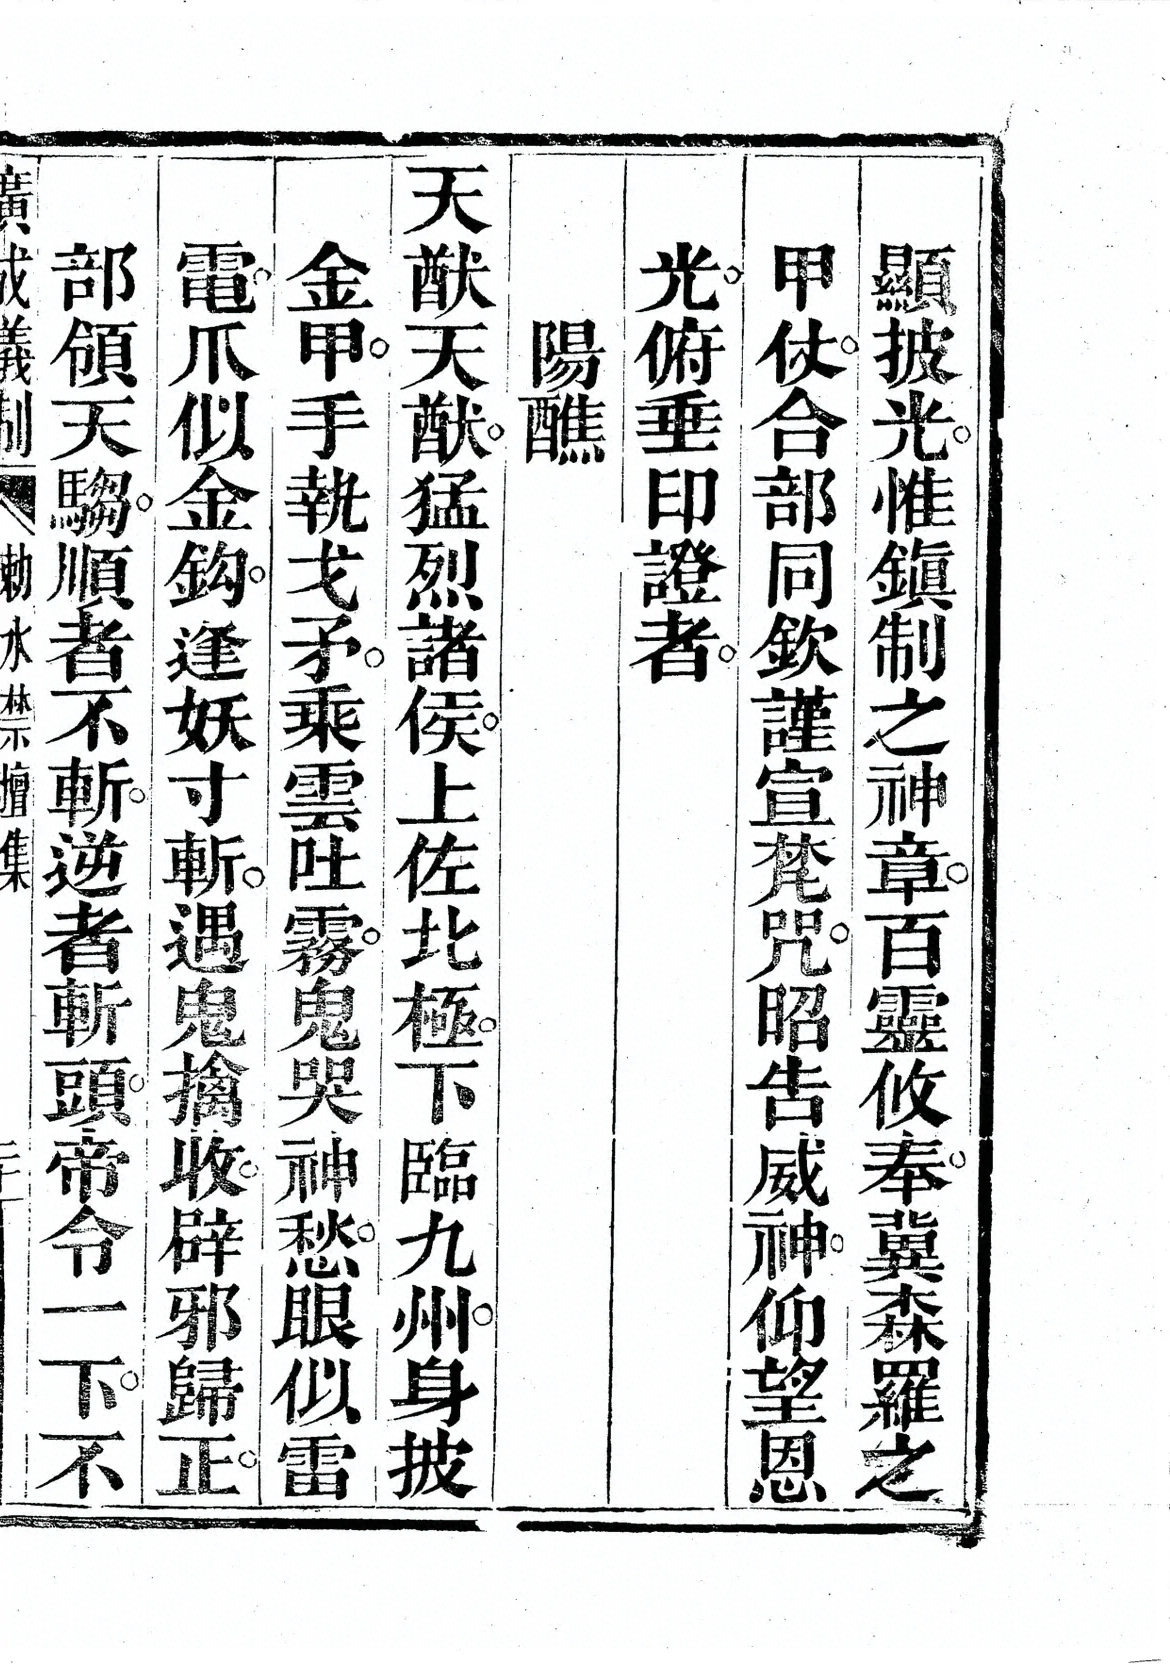 顯披光。惟鎭制之神章。百靈攸奉。冀森羅之
甲仗。合部同欽。謹宣梵咒。昭告威神。仰望恩
光。俯垂印證者。
陽醮
天猷天猷。猛烈諸侯。上佐北極。下臨九州。身披
金甲。手執戈矛。乘雲吐霧。鬼哭神愁。眼似雷
電。爪似金鈎。逢妖寸斬。遇鬼擒收。辟邪歸正。
部領天騶。順者不斬。逆者斬頭。帝令一下。不
廣成義制 勅水禁壇集